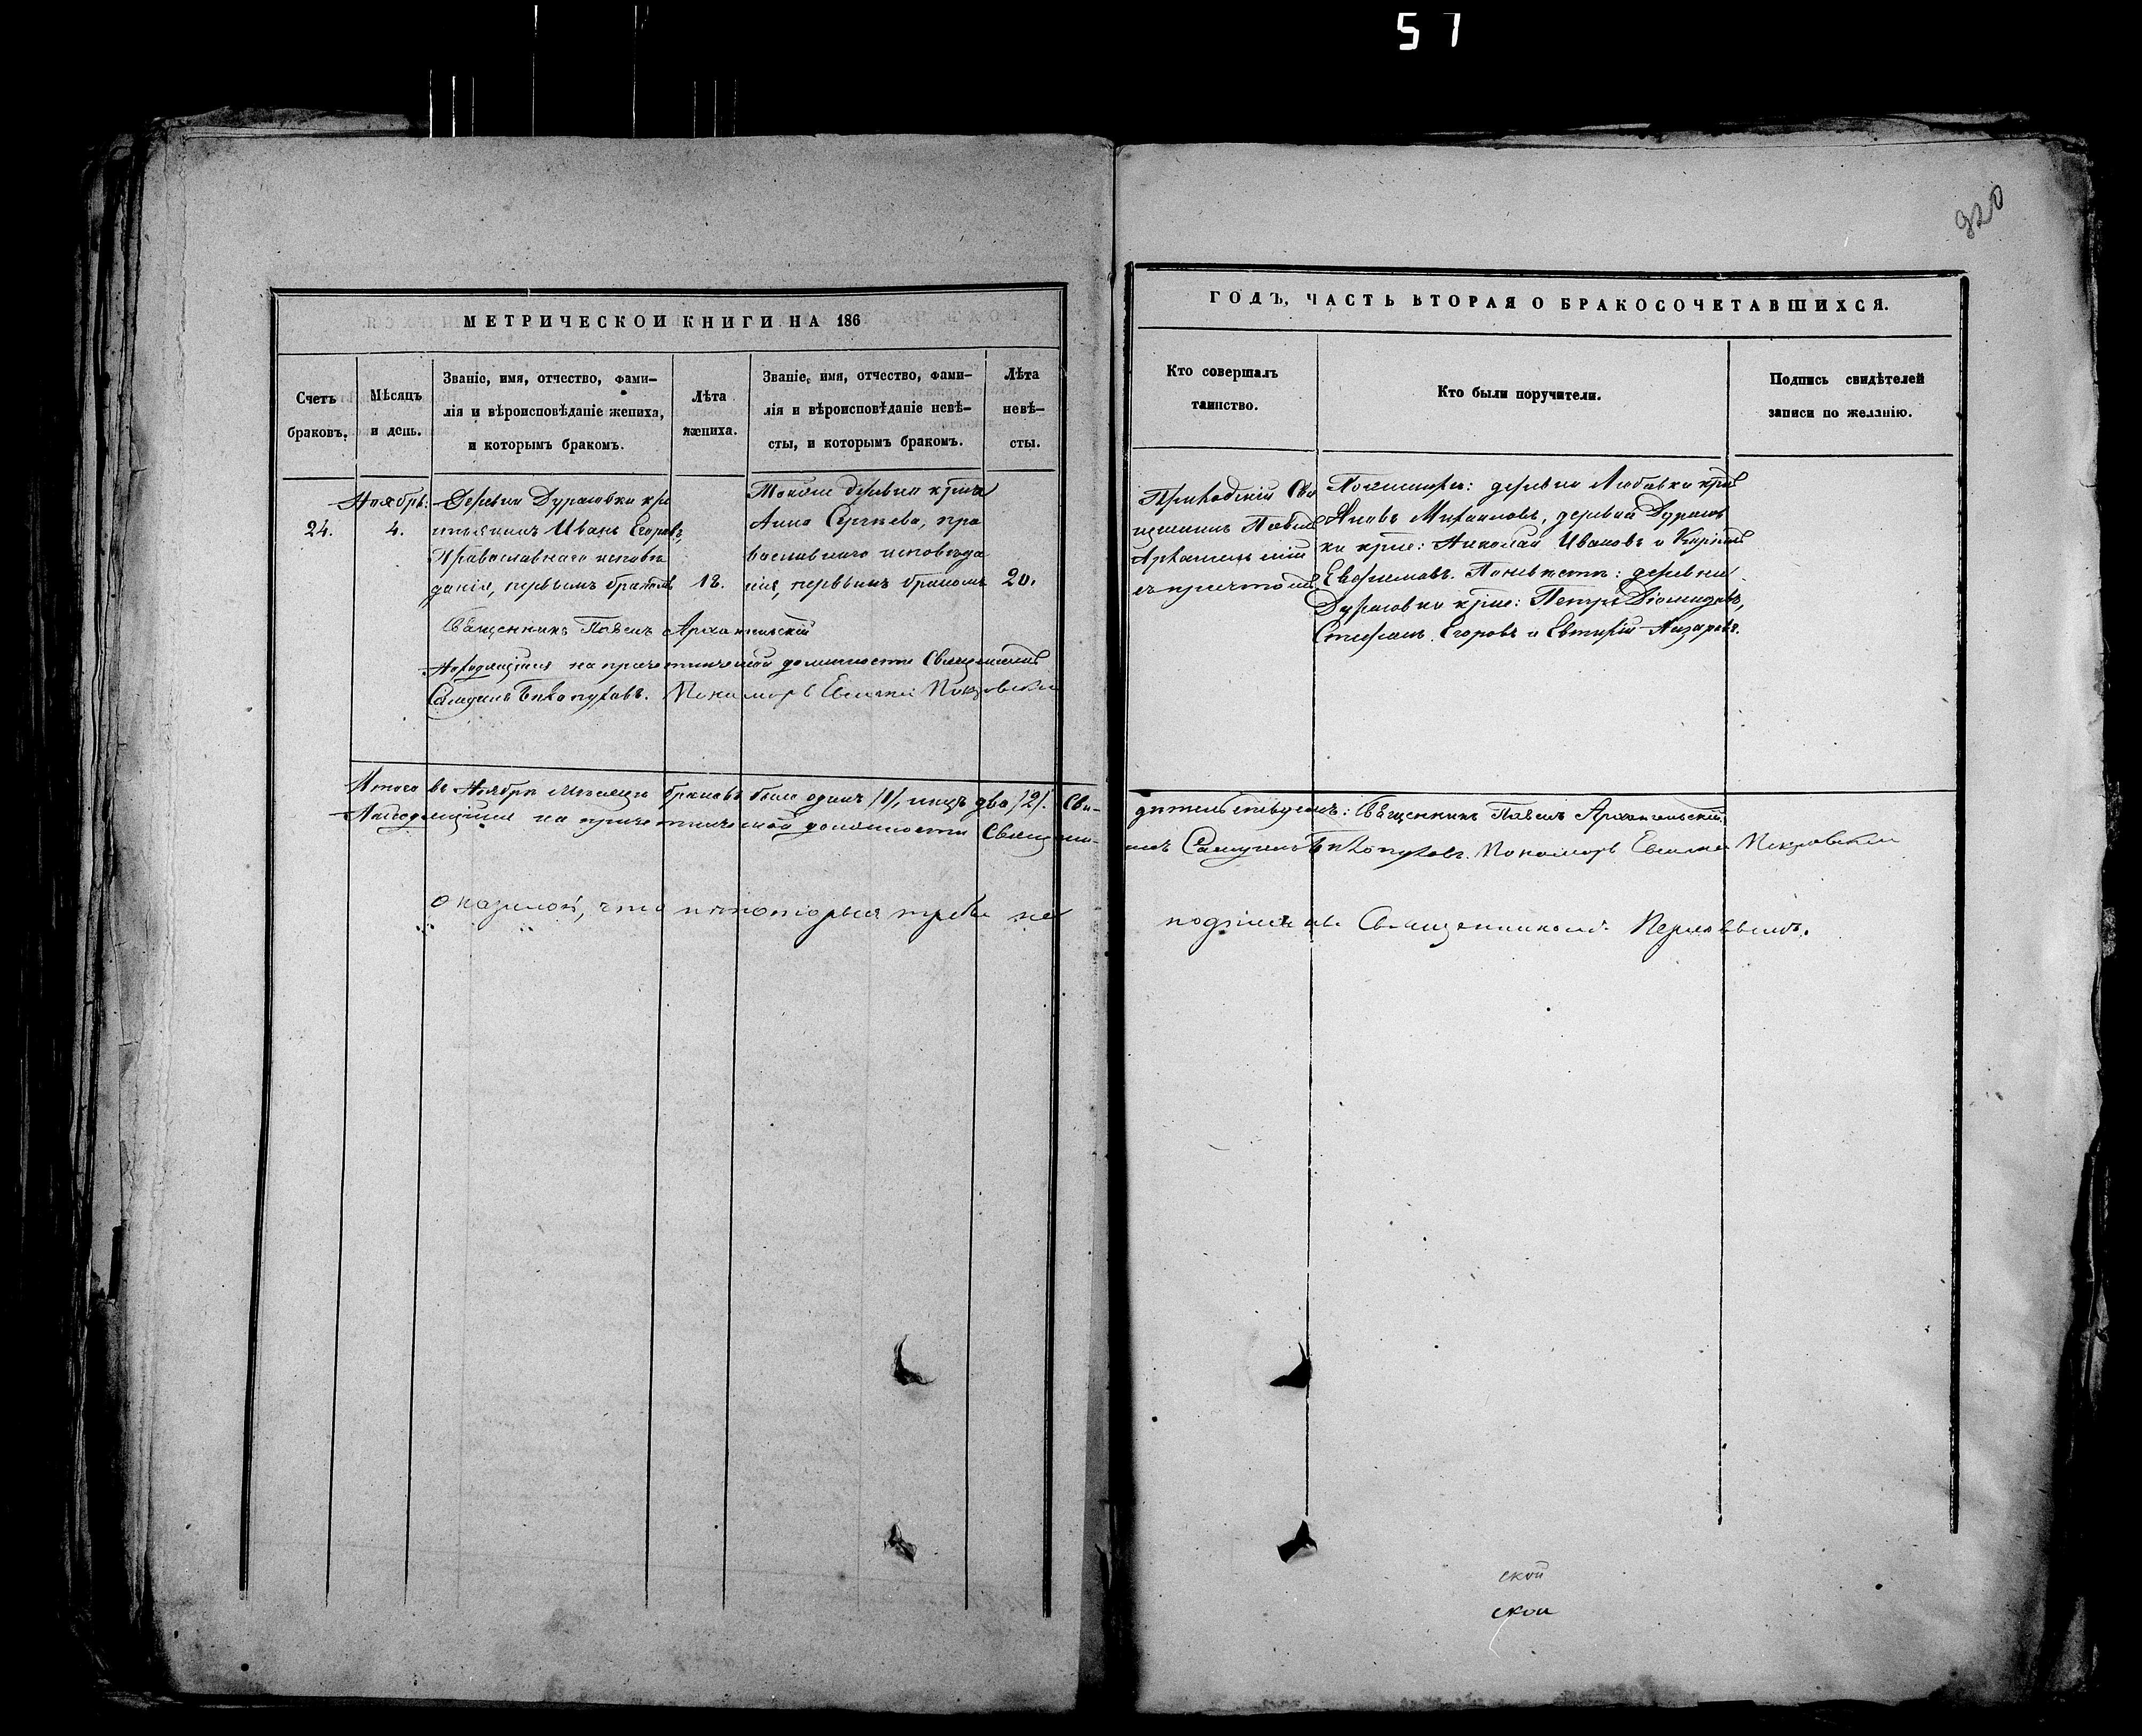 57
320
МЕТРИЧЕСКОЙ КНИГИ НА 186
ГОДЪ, ЧАСТЬ ВТОРАЯ О БРАКОСОЧЕТАВШИХСЯ.
Счетъ
браковъ.
Мѣсяцъ
и день.
Званіе, имя, отчество, фами-
лія и вѣроисповѣданіе жениха,
и которымъ бракомъ.
Лѣта
жениха.
Званіе, имя, отчество, фами-
лія и вѣроисповѣданіе невѣ-
сты, и которымъ бракомъ.
Лѣта
невѣ-
сты.
Кто совершалъ
таинство.
Кто были поручители.
Подпись свидѣтелей
записи по желанію.
24.
Ноябрь:
4.
Деревни Дурасовки кре
стьянинъ Иванъ Егоровъ,
Православнаго исповѣ
данія, первымъ бракомъ
18.
Тойже деревни крест
Анна Сергѣева, пра
вославнаго исповѣда
нія, первымъ бракомъ
20.
Приходскій Свя
щенникъ Павелъ
Архангельскій
съ причтомъ
По женихѣ: деревни Любовки крес
Яковъ Михаиловъ, деревни Дурасов
ки крес: Николай Ивановъ и Кирилъ
Евфимовъ. По невѣстѣ: деревни
Дурасовки крес: Петръ Діомидовъ,
Стефанъ Егоровъ и Евтихій Назаровъ.
Священникъ Павелъ Архангельскій
Находящійся на причетнической должности Священникъ
Самуилъ Бѣлопуховъ. Пономарь Евгеній Покровскій
Итого въ Ноябрѣ мѣсяцѣ браковъ было одинъ /1/, лицъ два /2/. Сви-
дѣтельствуемъ: Священникъ Павелъ Архангельскій,
Находящійся на причетнической должности Священ-
никъ Самуилъ Бѣлопуховъ. Пономарь Евгеній Покровскій
Оказалось, что нѣкоторыя требы не
подписаны Священникомъ
ской
ской